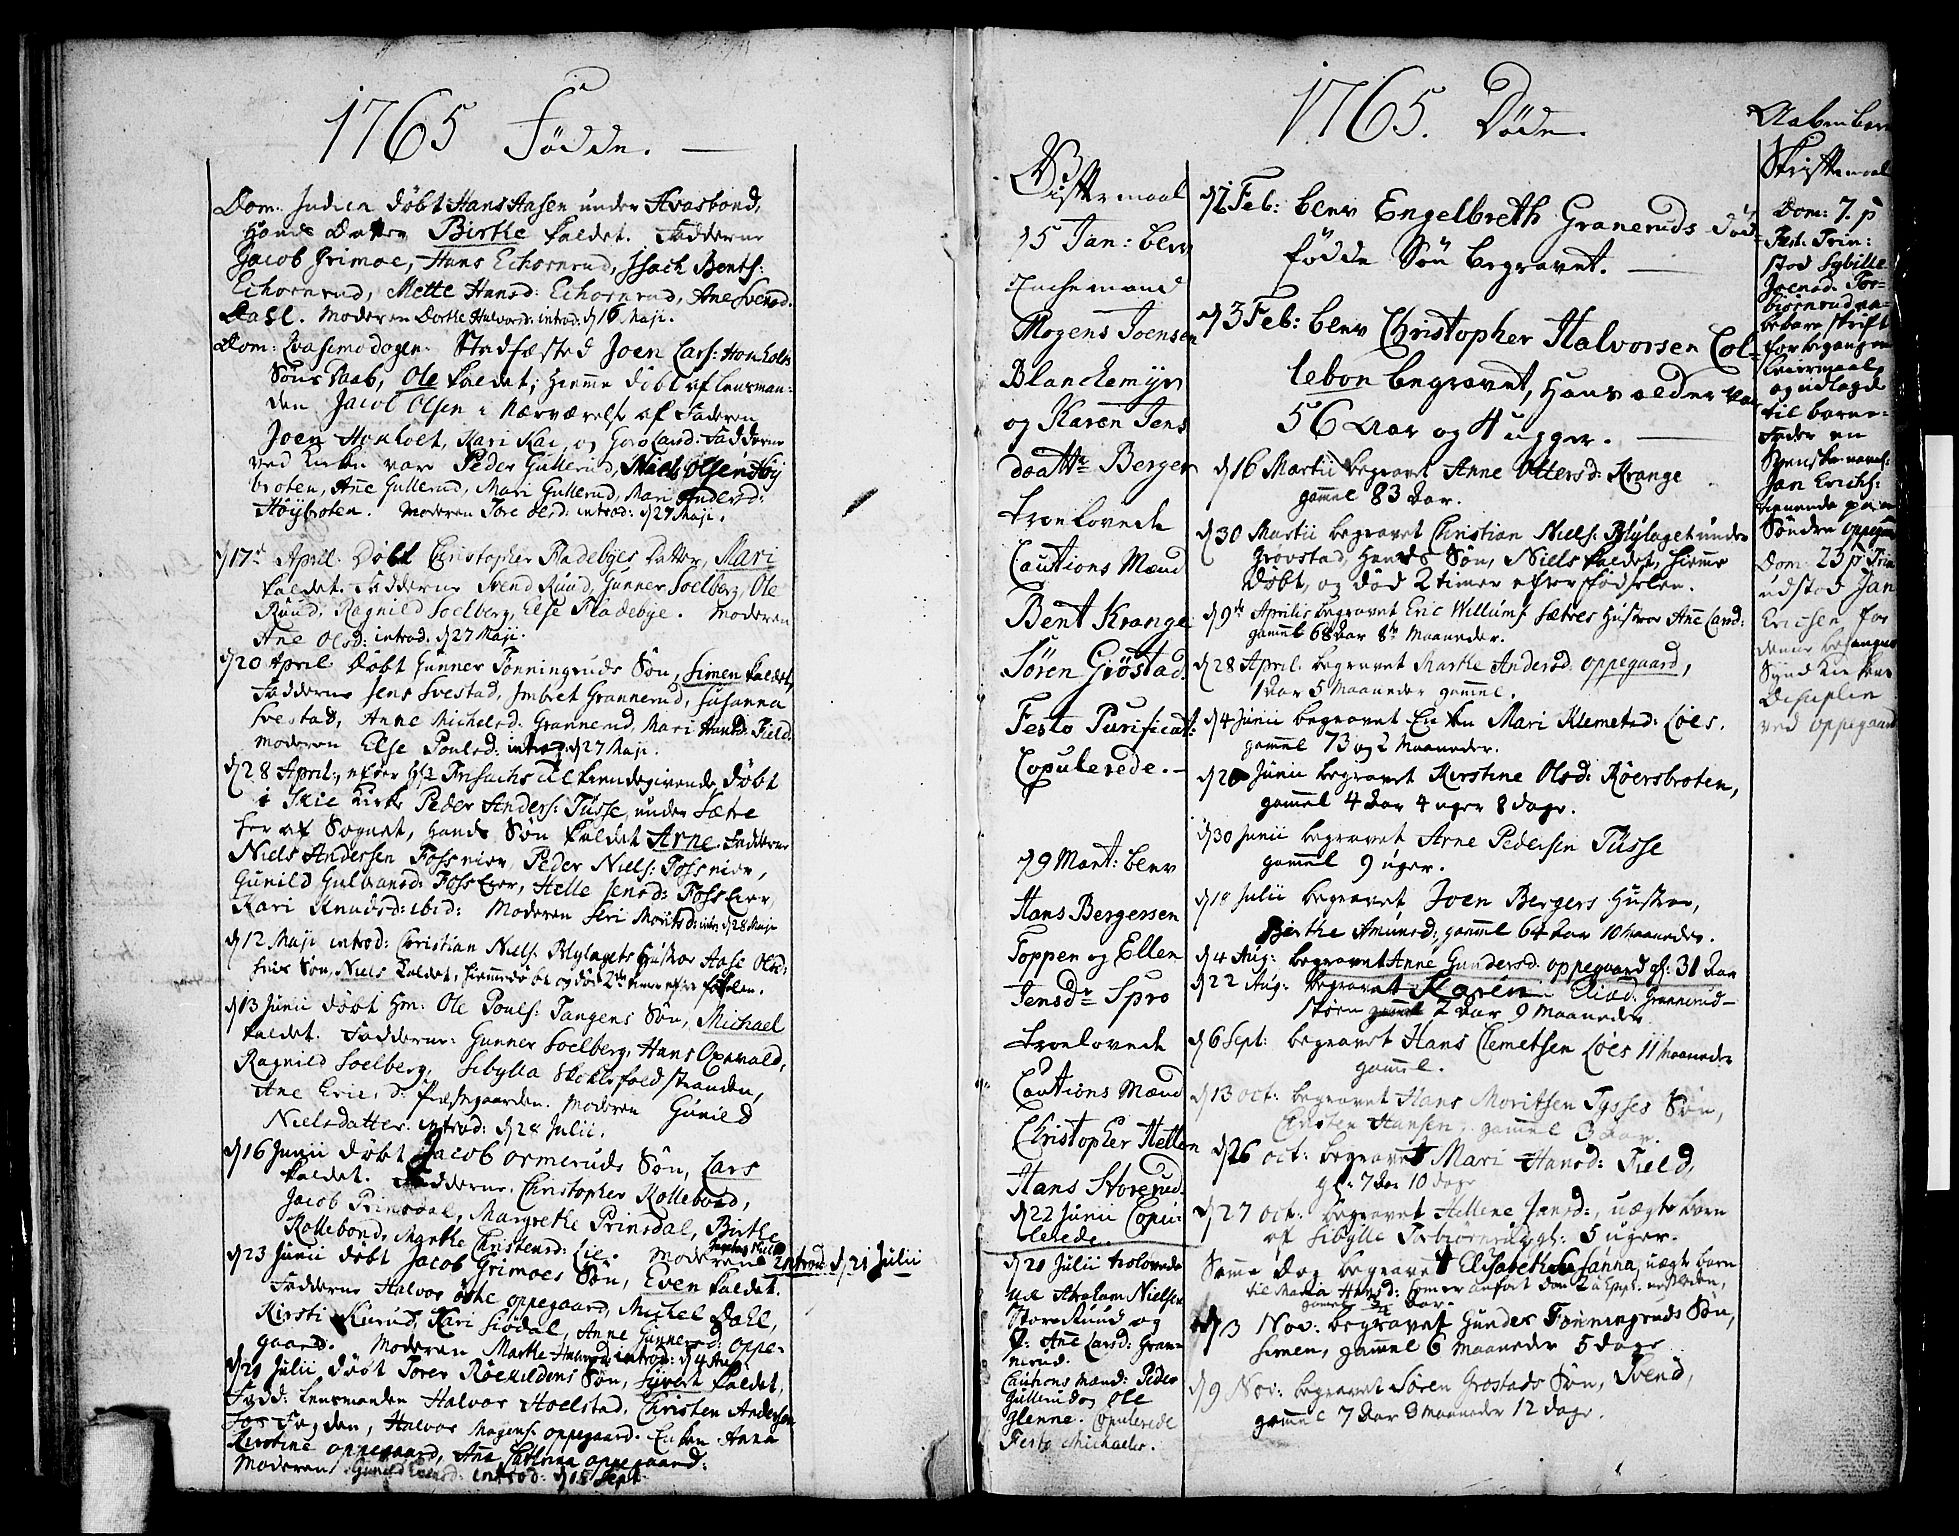 1765 Födde.
Dom: Judica döbt Hans Aasen under Hvasbond,
Hands Datter Birthe kaldet. Fadderne
Jacob Grimoe, Hans Echornrud, Isach Bents:
Echornrud, Mette Hansd: Echornrud, Ane Svensd.
Dahl. Moderen Dorthe Halvorsd: introd: d 16 Maji.
Dom: Qvasimodogen: Stadfæsted Joen Lars: Honholts
Söns Daab, Ole kaldet, hiemme döbt af Lensman-
den Jacob Olsen i Nærværelse af Faderen
Joen Honholt, Kari Kai, og Goro Larsd: Fadderne
ved Kirken vare Peder Gullerud, Niels Olsen Höy
broten, Ane Gullerud, Mari Gullerud, Mari Andersd:
Höybroten. Moderen Tore Olsd: introd: d 27 Maji.
d 17d April: Döbt Christopher Fladebyes Datter, Mari
kaldet. Fadderne Svend Ruud, Gunner Soelberg, Ole
Ruud, Ragnild Soelberg, Else Fladebye. Moderen
Ane Olsd: introd. d 27 Maji.
d 20 April döbt Gunner Tönningruds Sön, Simen kaldet,
Fadderne Jens Svestad, Imbret Grannerud, Susanna
Svestad, Anne Michelsd: Grannerud, Mari Hansd: Field:
Moderen Else Poulsd: introd: d 27 Maji.
d 28 April, efter Hr Frisachs Tilkiendegivende döbt
i Skie Kirke Peder Anders: Tusse, under Sætre
her af Sognet, Hands Sön kaldet Arne. Fadderne
Niels Andersen Fossneier, Peder Niels: Fossneier,
Gunild Gulbransd: Foss Eier, Helle Jensd: Foss Eier,
Kari Knudsd: ibid: Moderen Siri Moritsd: intr d 28 Maji
d 12 Maji introd: Christian Niels: Blylagets Hustroe Aase Olsd:
hvis Sön, Niels kaldet, hiemmedöbt og död 2de timer efter födselen.
d 13 Junii döbt Hm: Ole Pouls: Tangens Sön, Michael
kaldet. Fadderne: Gunner Soelberg, Hans Oxevald,
Ragnild Soelberg, Sibylla Skoklefaldstranden,
Ane Eric: d: Præstgaarden. Moderen Gunild
Nielsdatter. introd: d 28 Julii.
d 16 Junii döbt Jacob Ormeruds Sön, Lars
kaldet. Fadderne. Christopher Kollebond,
Jacob Prinsdal, Margrethe Prinsdal, Birthe
Kollebond, Marthe Christensd: Lie. Moderen introd d 21 Julii
d 23 Junii döbt Jacob Grimoes Sön, Even kaldet.
Fadderne Halvor östre oppegaard, Michel Dahl,
Kirsti Kurud, Kari Siödal, Anne Gunnersd: Oppe-
gaard. Moderen Marthe Halvorsd: introd: d 4 Aug:
d 21 Julii döbt Torer Röekildens Sön, Sivert kaldet,
Fadd: Lensmanden Halvor Hoelstad, Christen Andersen
Fogden, Halvor Mogens: oppegaard. Enken Anna
Kirstine oppegaard, Ane Cathrina oppegaard:
Moderen Gunild Evensd: introd: d 15 Sept
1765. Döde.
Egteskaber
Bistermaal
d 5 Jan: blev
Enkemand
Mogens Joensen
Blanckemÿr
og Karen Jens
daatter Berger
Troelovede
Cautions Mænd
Bent Krange
Sören Gröstad
Festo Purificat:
Copulerede.
d 9 Mart: blev
Hans Bergersen
Toppen og Ellen
Jensdr Spro
Troelovede
Cautions Mænd
Christopher Hellen
Hans Storerud.
d 22 Junii Copu-
lerede.
d 21 Julii trolovede
Abraham Nielsen
Store Ruud og
P: Ane Larsd: Gran-
nerud.
Cautions Mænd: Peder
Gullerud og Ole
Glenne. Copulerede
Festo Michaelis.
d 2 Feb: blev Engelbreth Graneruds död-
födde Sön begravet.
d 3 Feb: blev Christopher Halvorsen Col-
lebon begravet, hans alder var
56 aar og 4 ugger.
d 16 Martii begravet Anne Oltersd: Krange
gammel 83 Aar.
d 30 Martii begravet Christian Niels: Blylaget under
Grovstad, Hands Sön, Niels kaldet, hiemme
döbt, og död 2 timer efter födselen.
d 9de Aprilis begravet Eric Willums: Sætres Hustroe Ane Larsd:
gammel 68 aar 8te Maaneder.
d 28 April: begravet Marthe Andersd. oppegaard,
1 Aar 5 Maaneder gammel.
d 4 Junii begravet Enken Mari Klemetsd: Löes.
gammel 73 og 2 Maaneder.
d 20 Junii begravet Kirstine Olsd: Röersbroten,
gammel 4 Aar 4 uger 8 dage.
d 30 Junii begravet Arne Pedersen Tusse
gammel 9 uger.
d 18 Julii begravet Joen Bergers Hustroe,
Birthe Amunsd: gammel 64 Aar 10 Maaneder.
d 4 Aug: begravet Anne Gundersd. oppegaard gl: 31 Aar
d 22 Aug: begravet Karen Eliæd: Grannerud-
skoen gammel 2 Aar 9 Maaneder
d 6 Sept: begravet Hans Clemetsen Löes 11 Maaneder
gammel.
d 13 oct: begravet Hans Moritsen Tysses Sön,
Christen Hansen, gammel 3 Aar.
d 26 oct: begravet Mari Hansd: Field,
gl: 7 Aar 10 dage
d 27 oct: begravet Hellene Jansd:, uægte barn
af Sibylle Torbiörnrud gl: 5 uger.
Samme Dag begravet Elisabeth Susanna, uægte barn
til Maria Hansd:
gammel 3/4 Aar.
d 3 Nov: begravet Gunder Tönningruds Sön,
Simen, gammel 6 Maaneder 5 dage
d 9 Nov: begravet Sören Grostads Sön, Svend,
gammel 7 Aar 8 Maaneder 12 dage.
Aabenbare
Skriftemaal
Dom: 7. p
Fest: Trin:
stod Sybille
Joensd: Tor-
biörnrud aa-
benbare skrift
for begangen
Leiermaal,
og udlagde
til barne-
Fader en
Svensk navnl:
Jan Erichs:
tienende paa
Söndre oppegaard
Dom: 23 p Trin
udstod Jan
Ericsen for
denne begangne
Synd Kirkens
Disciplin
ved oppegaard